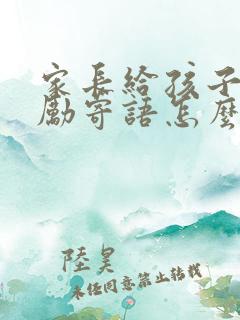 家长给孩子
勵寄語怎麼
陸昊
未经同意禁止转载